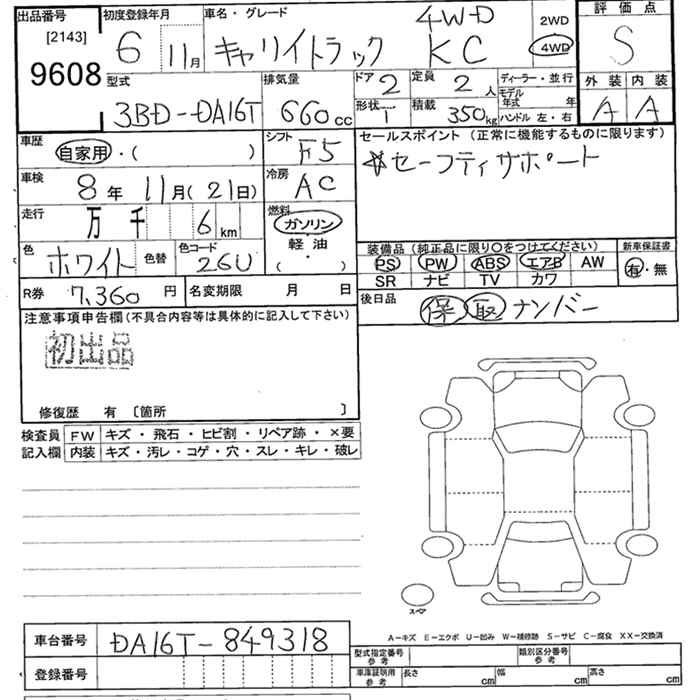 出品番号 初度登録年月 車名・グレード 4WD 2WD 評価点
[2143] 6 11月 キャリイトラック KC 4WD S
9608 型式 排気量 ドア 2 定員 2人 ディーラー・並行 外装 内装
3BD-DA16T 660cc 形状 1 積載 350kg モデル年式 年 ハンドル 左・右 A A
車歴 自家用・( ) シフト F5 セールスポイント (正常に機能するものに限ります)
車検 8年 11月(21日) 冷房 AC ☆セーフティサポート
走行 万 千 6km 燃料 ガソリン
軽油
( )
色 ホワイト 色替 色コード 26U
装備品 (純正品に限り○をつけてください) 新車保証書
PS PW ABS エアB AW 有・無
SR ナビ TV カワ
R券 7,360円 名変期限 月 日 後日品 保 取 ナンバー
注意事項申告欄(不具合内容等は具体的に記入して下さい)
初出品
修復歴 有 〔箇所 〕
検査員 FW キズ・飛石・ヒビ割・リペア跡・×要
記入欄 内装 キズ・汚レ・コゲ・穴・スレ・キレ・破レ
スペア
A-キズ E-エクボ U-凹み W-補修跡 S-サビ C-腐食 XX-交換済
車台番号 DA16T-849318 型式指定番号 参考 類別区分番号 参考
登録番号 車庫証明用 参考 長さ cm 幅 cm 高さ cm